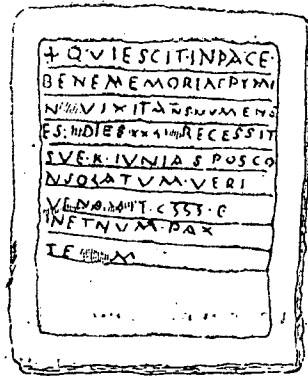 + QVIESCIT·IN PACE·
BENEMEMORIAE PYMI
N VIXIT ANS NVMENS
ES: DIES XXI RECESSIT
SVE·K·IVNIAS POSCO
NSOLATVM·VERI
VENA
NETNVM·PAX
TE M